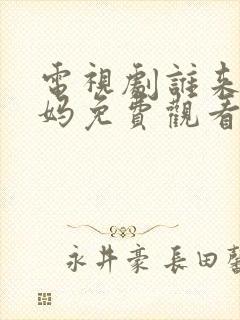 電視劇誰來
媽免費觀看
永井豪 長田馨